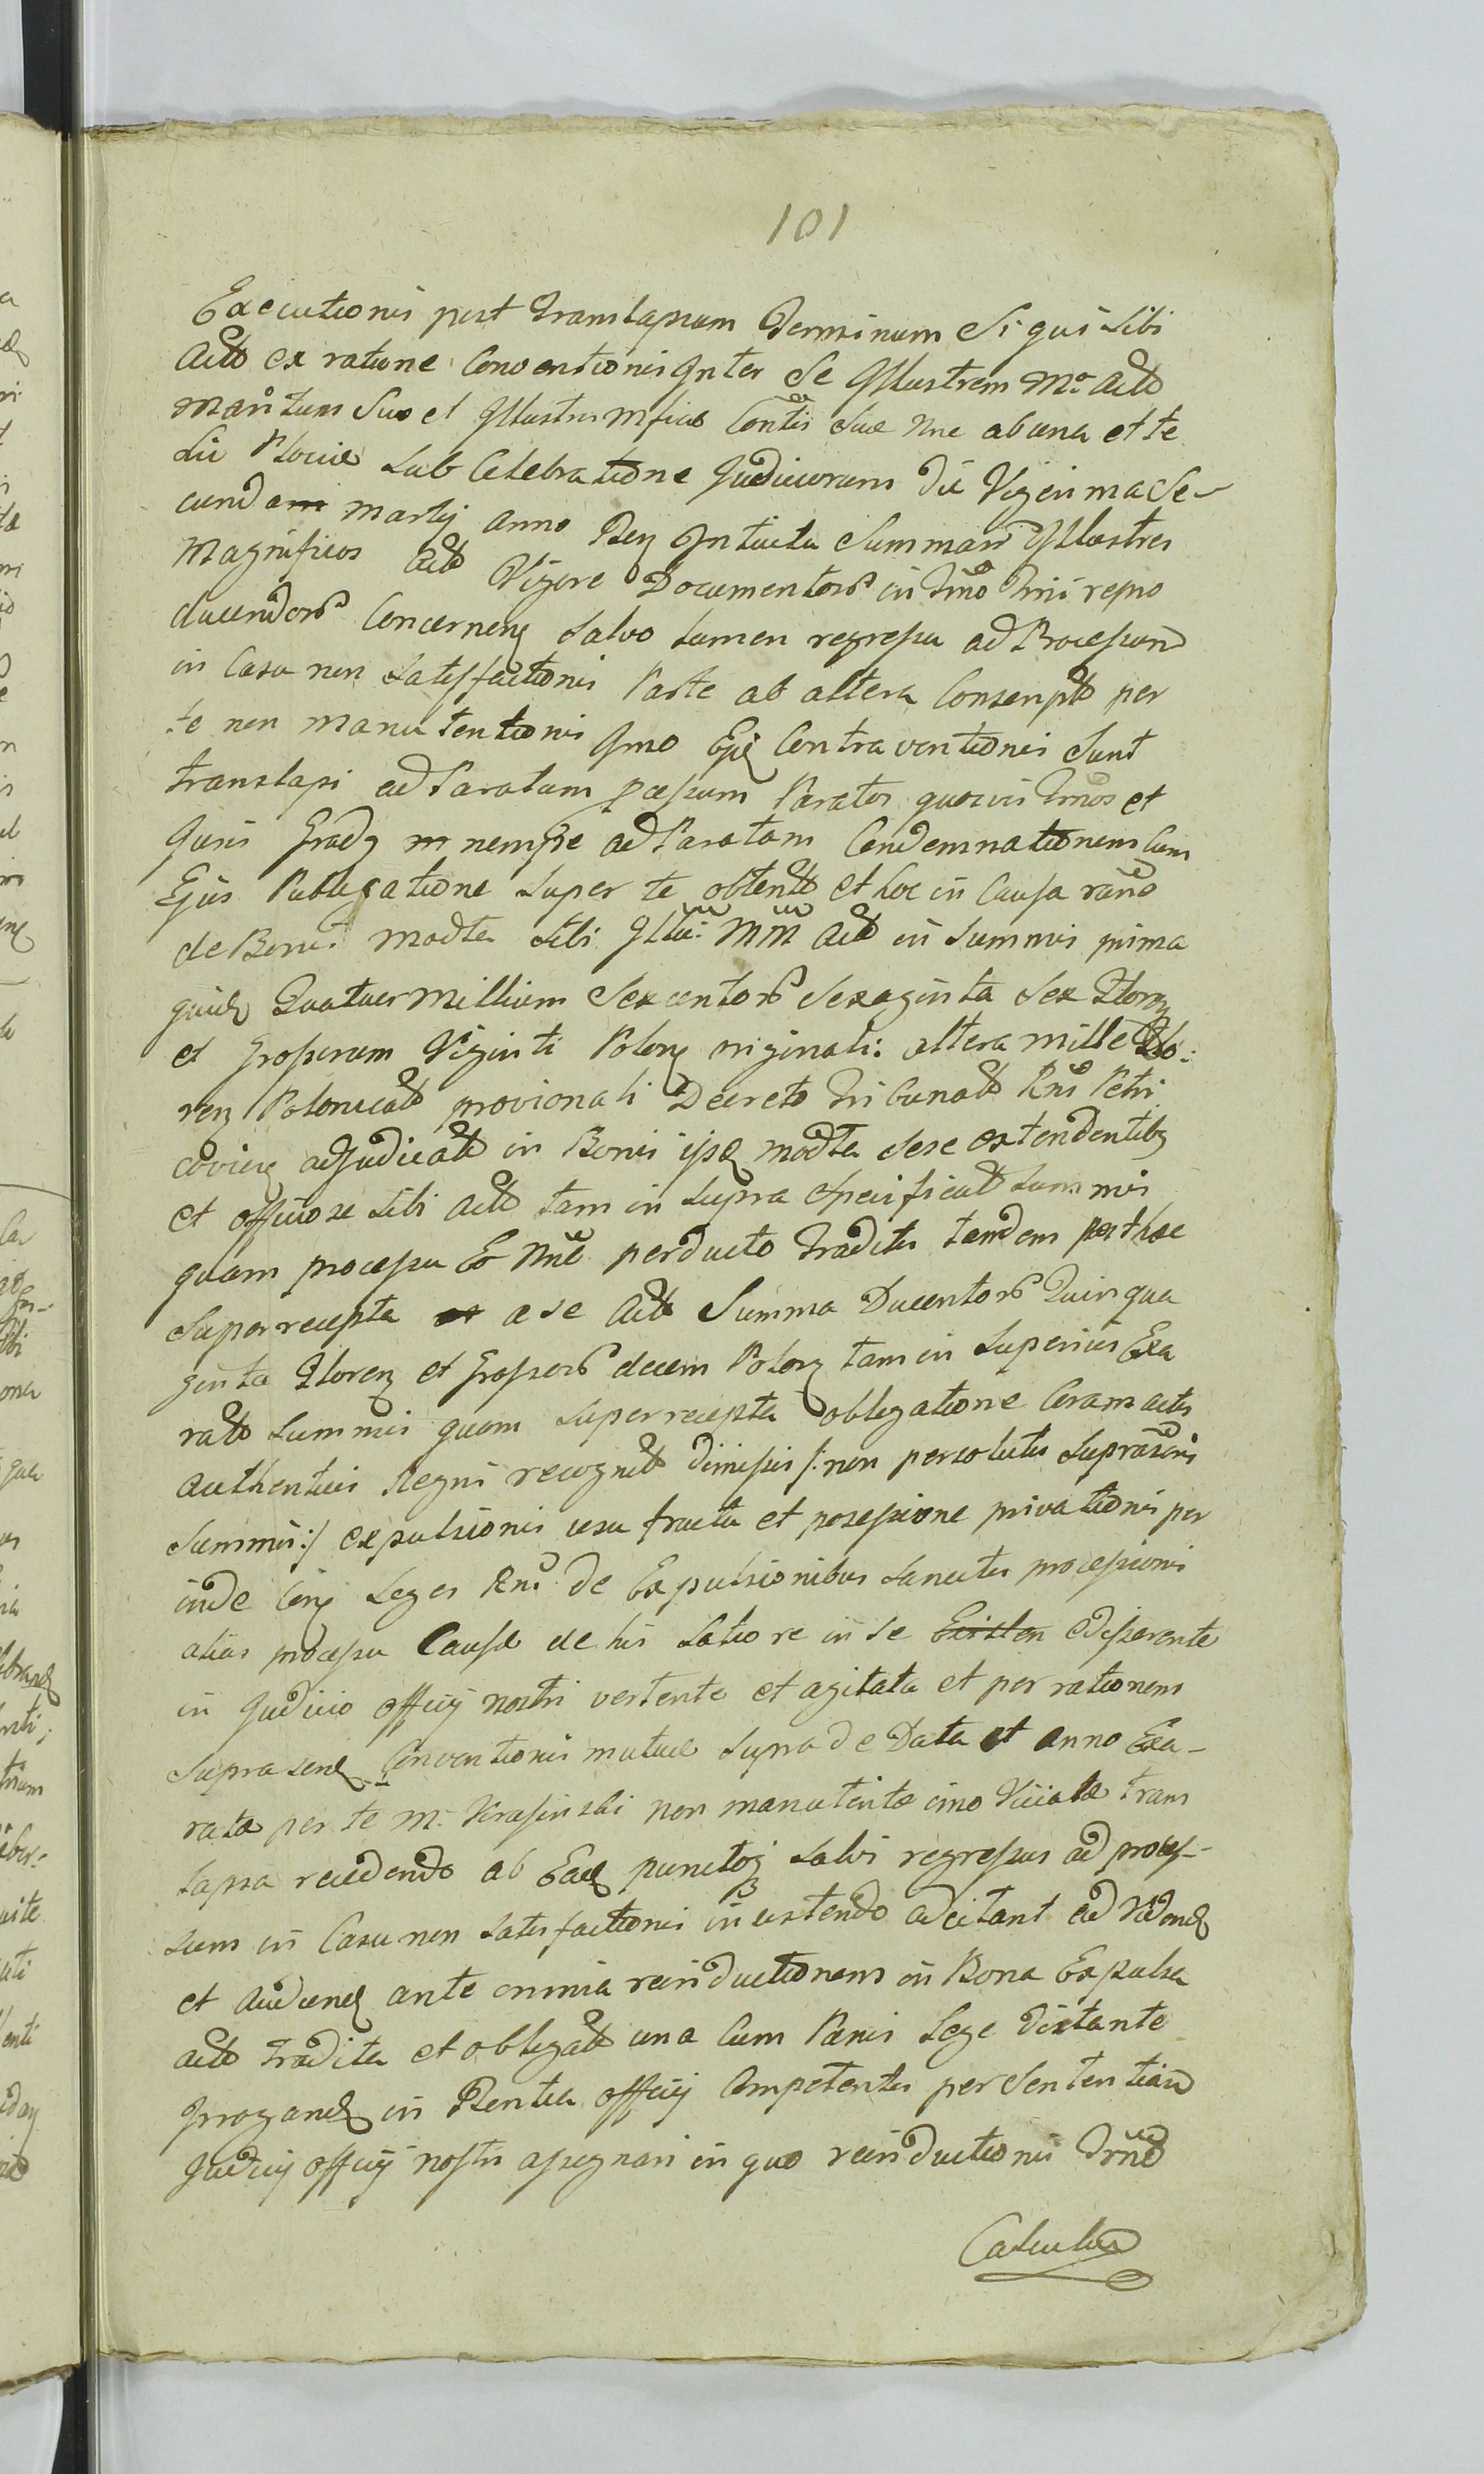 101
Executionis post translapsum Terminum si qui sibi
Actt ex ratione Conventionis Inter se Illustrem Mm Actt
Maritum Suo et Illustris Mficae Contis Sue Nne ab una et te
Sub Celebratione Judiciorum die Vigesima Se-
cundam Martij Anno Intuitu Summarr Illustres
Magnificos Actt Vigore Documentorr in Tmo Tmi repro
ducendorr Concernen salvo tamen regressu ad Processum
in Casu non Satisfactionis Parte ab altera Conscriptt per
te non manutentionis Imo Ejq Contraventionis Sunt
translapsi ad Paratum passum Paratos quosvis Tmos et
Juris Gradq m nempe ad Paratam Condemnationem Cum
Ejus Publicatione super te obtentt et hoc in Causa rane
de Bonis modte sibi Illu: MM Actt in Summis prima
quidq Quatuor Millium Sexcentorr Sexaginta Sex Floren
et Grossorum Viginti Polon originali: altera mille Flo:
ren Polonicalt provisionali Decreto Tribunalt Rni Petri
covien adjudicatt in Bonis ipsq modte sese extendentibq
et officiose sibi Actt tam in supra specificatt Summis
quam processu Ex Nne perducto traditis tandem post hac
superrecepta a se Actt Summa Ducentorr Quinqua
ginta Floren et Grossorr decem Polon tam in superius Exa
ratt Summis quam superrecepta obligatione Coram actis
Authenticis Regni recognitt dimissis /: non persolutis suprascris
Summis :/ expulsionis usu fructu et possessione privationis per
inde Ctra Leges Rni de Expulsionibus sancitis processionis
alias processu Causae de his Latiore in se Existen edisserente
in Judicio officij nostri vertente et agitata et per rationem
suprascrip Conventionis mutuae supra de Data et Anno Exa-
rata per te M. non manutentae imo Viciatae trans
lapsa recedendo ab Eadq punctoq salvi regressus ad proces-
sum in Casu non Satisfactionis insistendo adcitant ad Videndq
et Audiendq ante omnia reinductionem in Bona Expulsa
Actt tradita et obligatt una Cum Paenis Lege Dictante
Irrogandq in Pcntia officij Competentis per Sententiam
Judicij officij nostri assignari in quo reinductionis Trno